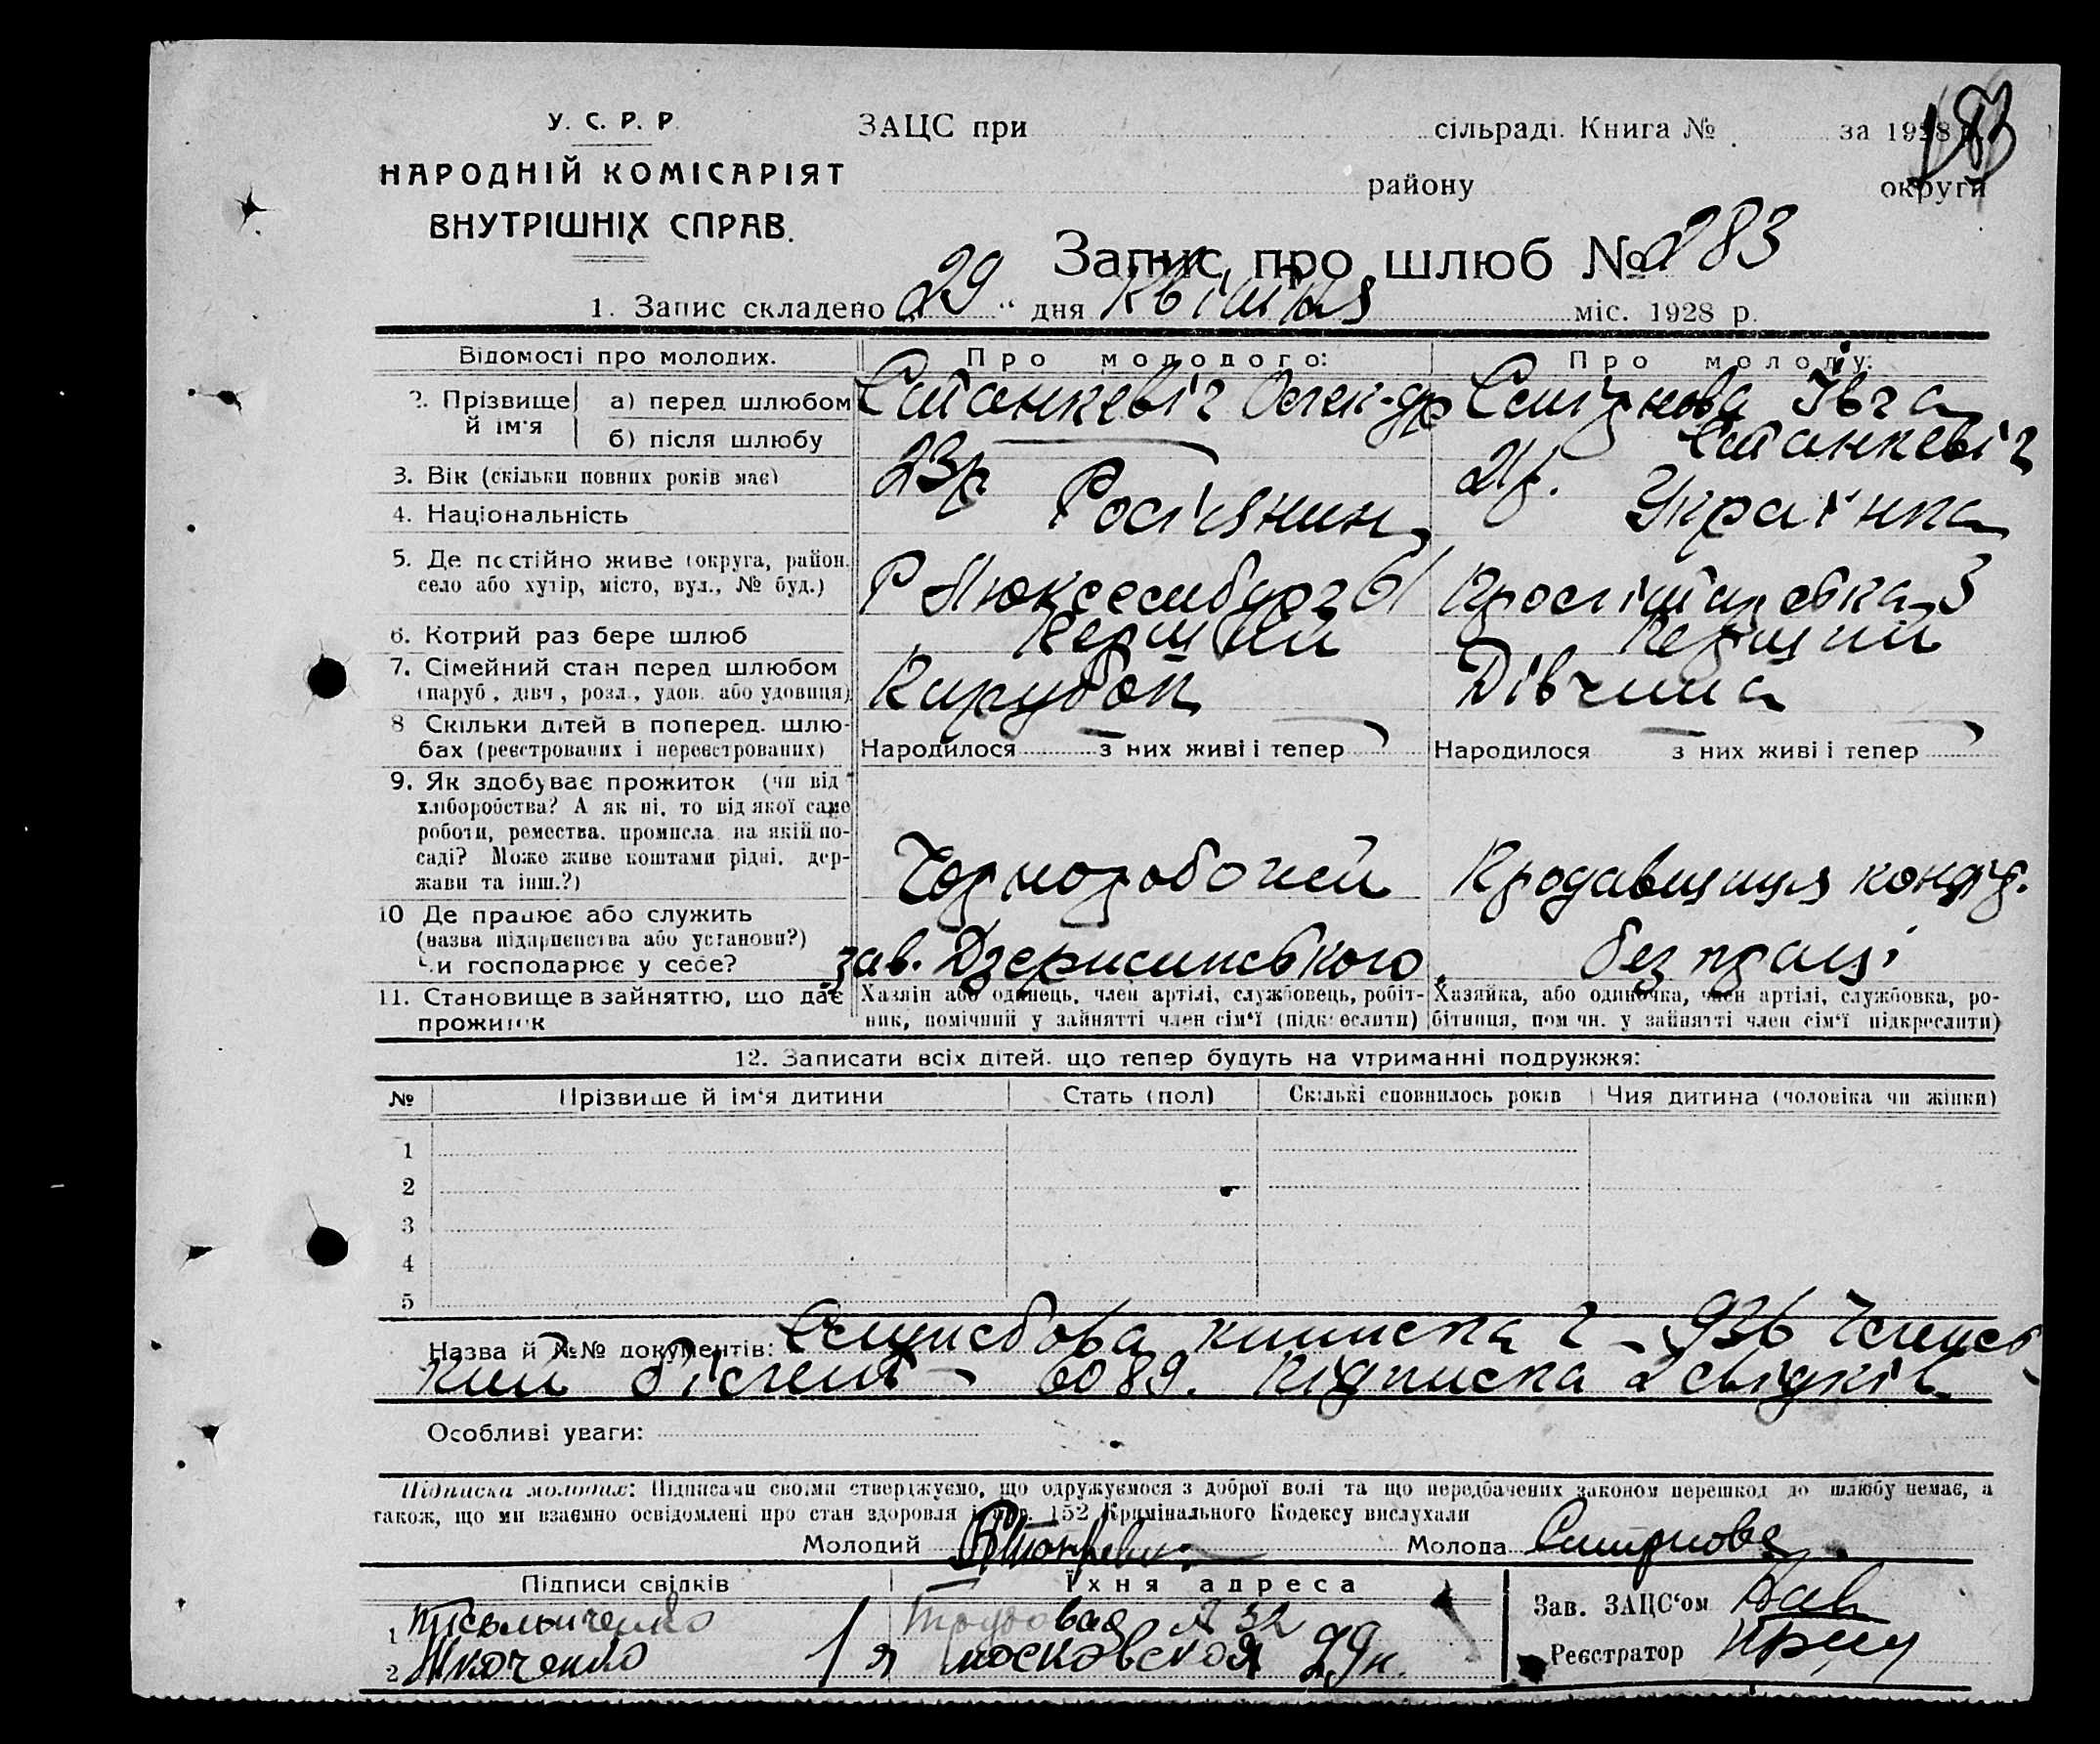 У. С. Р. Р.
НАРОДНІЙ КОМІСАРІЯТ
ВНУТРІШНІХ СПРАВ.
ЗАЦС при сільраді. Книга № за 1928
183
району округи
Запис про шлюб № 283
1. Запис складено „29“ дня Квітня міс. 1928 р.
Відомості про молодих. Про молодого: Про молоду:
2. Прізвище й ім'я а) перед шлюбом Станкевіч Олек-др Смірнова
б) після шлюбу — Станкевіч
3. Вік (скільки повних років має) 23р 21р.
4. Національність Росіянин Українка
5. Де постійно живе (округа, район, село або хутір, місто, вул., № буд.) Р Люксембург 61 3
6. Котрий раз бере шлюб Перший Перший
7. Сімейний стан перед шлюбом Парубок Дівчина
(паруб., дівч., розл., удов. або удовиця)
8 Скільки дітей в поперед. шлюбах (реєстрованих і нереєстрованих) Народилося — з них живі і тепер Народилося — з них живі і тепер
9. Як здобуває прожиток (чи від
хліборобства? А як ні, то від якої саме
роботи, ремества, промисла на якій по-
саді? Може живе коштами рідні, дер-
жави та інш.?) Чорноробочий Продавщиця
10 Де працює або служить
(назва підприємства або установи?)
Чи господарює у себе? зав. Дзержинського без праці
11. Становище в зайняттю, що дає прожиток
Хазяїн або одинець, член артілі, службовець, робіт-
ник, помічний у зайнятті член сім'ї (підкреслити)
Хазяйка, або одиночка, член артілі, службовка, ро-
бітниця, помічн. у зайнятті член сім'ї підкреслити)
12. Записати всіх дітей, що тепер будуть на утриманні подружжя:
№ Прізвище й ім'я дитини Стать (пол) Скількі сповнилось років Чия дитина (чоловіка чи жінки)
1
2
3
4
5
Назва й №№ документів: Службова книжка ч – 936 Членсь
кий білет – 6089. Підписка 2 свідків
Особливі уваги:
Підписка молодих: Підписами своїми стверджуємо, що одружуємося з доброї волі та що передбачених законом перешкод до шлюбу немає, а
також, що ми взаємно освідомлені про стан здоровля і арт. 152 Кримінального Кодексу вислухали
Молодий Станкевич Молода Смирнова
Підписи свідків Їхня адреса
Зав. ЗАЦС'ом
1 Письмиченко Трудовая № 32
2 Ткаченко 1я московская 29н.
Реєстратор